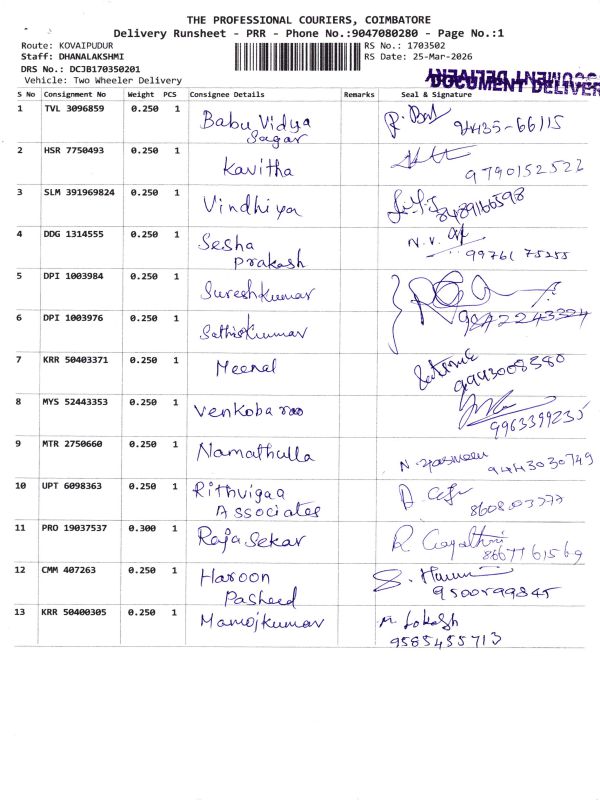 THE PROFESSIONAL COURIERS, COIMBATORE
Delivery Runsheet - PRR - Phone No.:9047080280 - Page No.:1
Route: KOVAIPUDUR RS No.: 1703502
Staff: DHANALAKSHMI RS Date: 25-Mar-2026
DRS No.: DCJB170350201
Vehicle: Two Wheeler Delivery
DOCUMENT DELIVER
S No Consignment No Weight PCS Consignee Details Remarks Seal & Signature
1 TVL 3096859 0.250 1 Babu Vidya
Sagar 9435-66115
2 HSR 7750493 0.250 1 Kavitha
3 SLM 391969824 0.250 1 Vindhiya 8489166598
4 DDG 1314555 0.250 1 Sesha N.V.
Prakash 99761 75255
5 DPI 1003984 0.250 1 Sureshkumar
6 DPI 1003976 0.250 1 Sathiskumar 9842243324
7 KRR 50403371 0.250 1 Meenal 9993008580
8 MYS 52443353 0.250 1 Venkoba rao 9963399235
9 MTR 2750660 0.250 1 Namathulla N. Yasmeen 9443030749
10 UPT 6098363 0.250 1 Rithvigaa
Associates
11 PRO 19037537 0.300 1 Raja Sekar R Gayathri
8667761569
12 CMM 407263 0.250 1 Haroon
Pasheed 9500599845
13 KRR 50400305 0.250 1 Manojkumar M Lokesh
9585455713